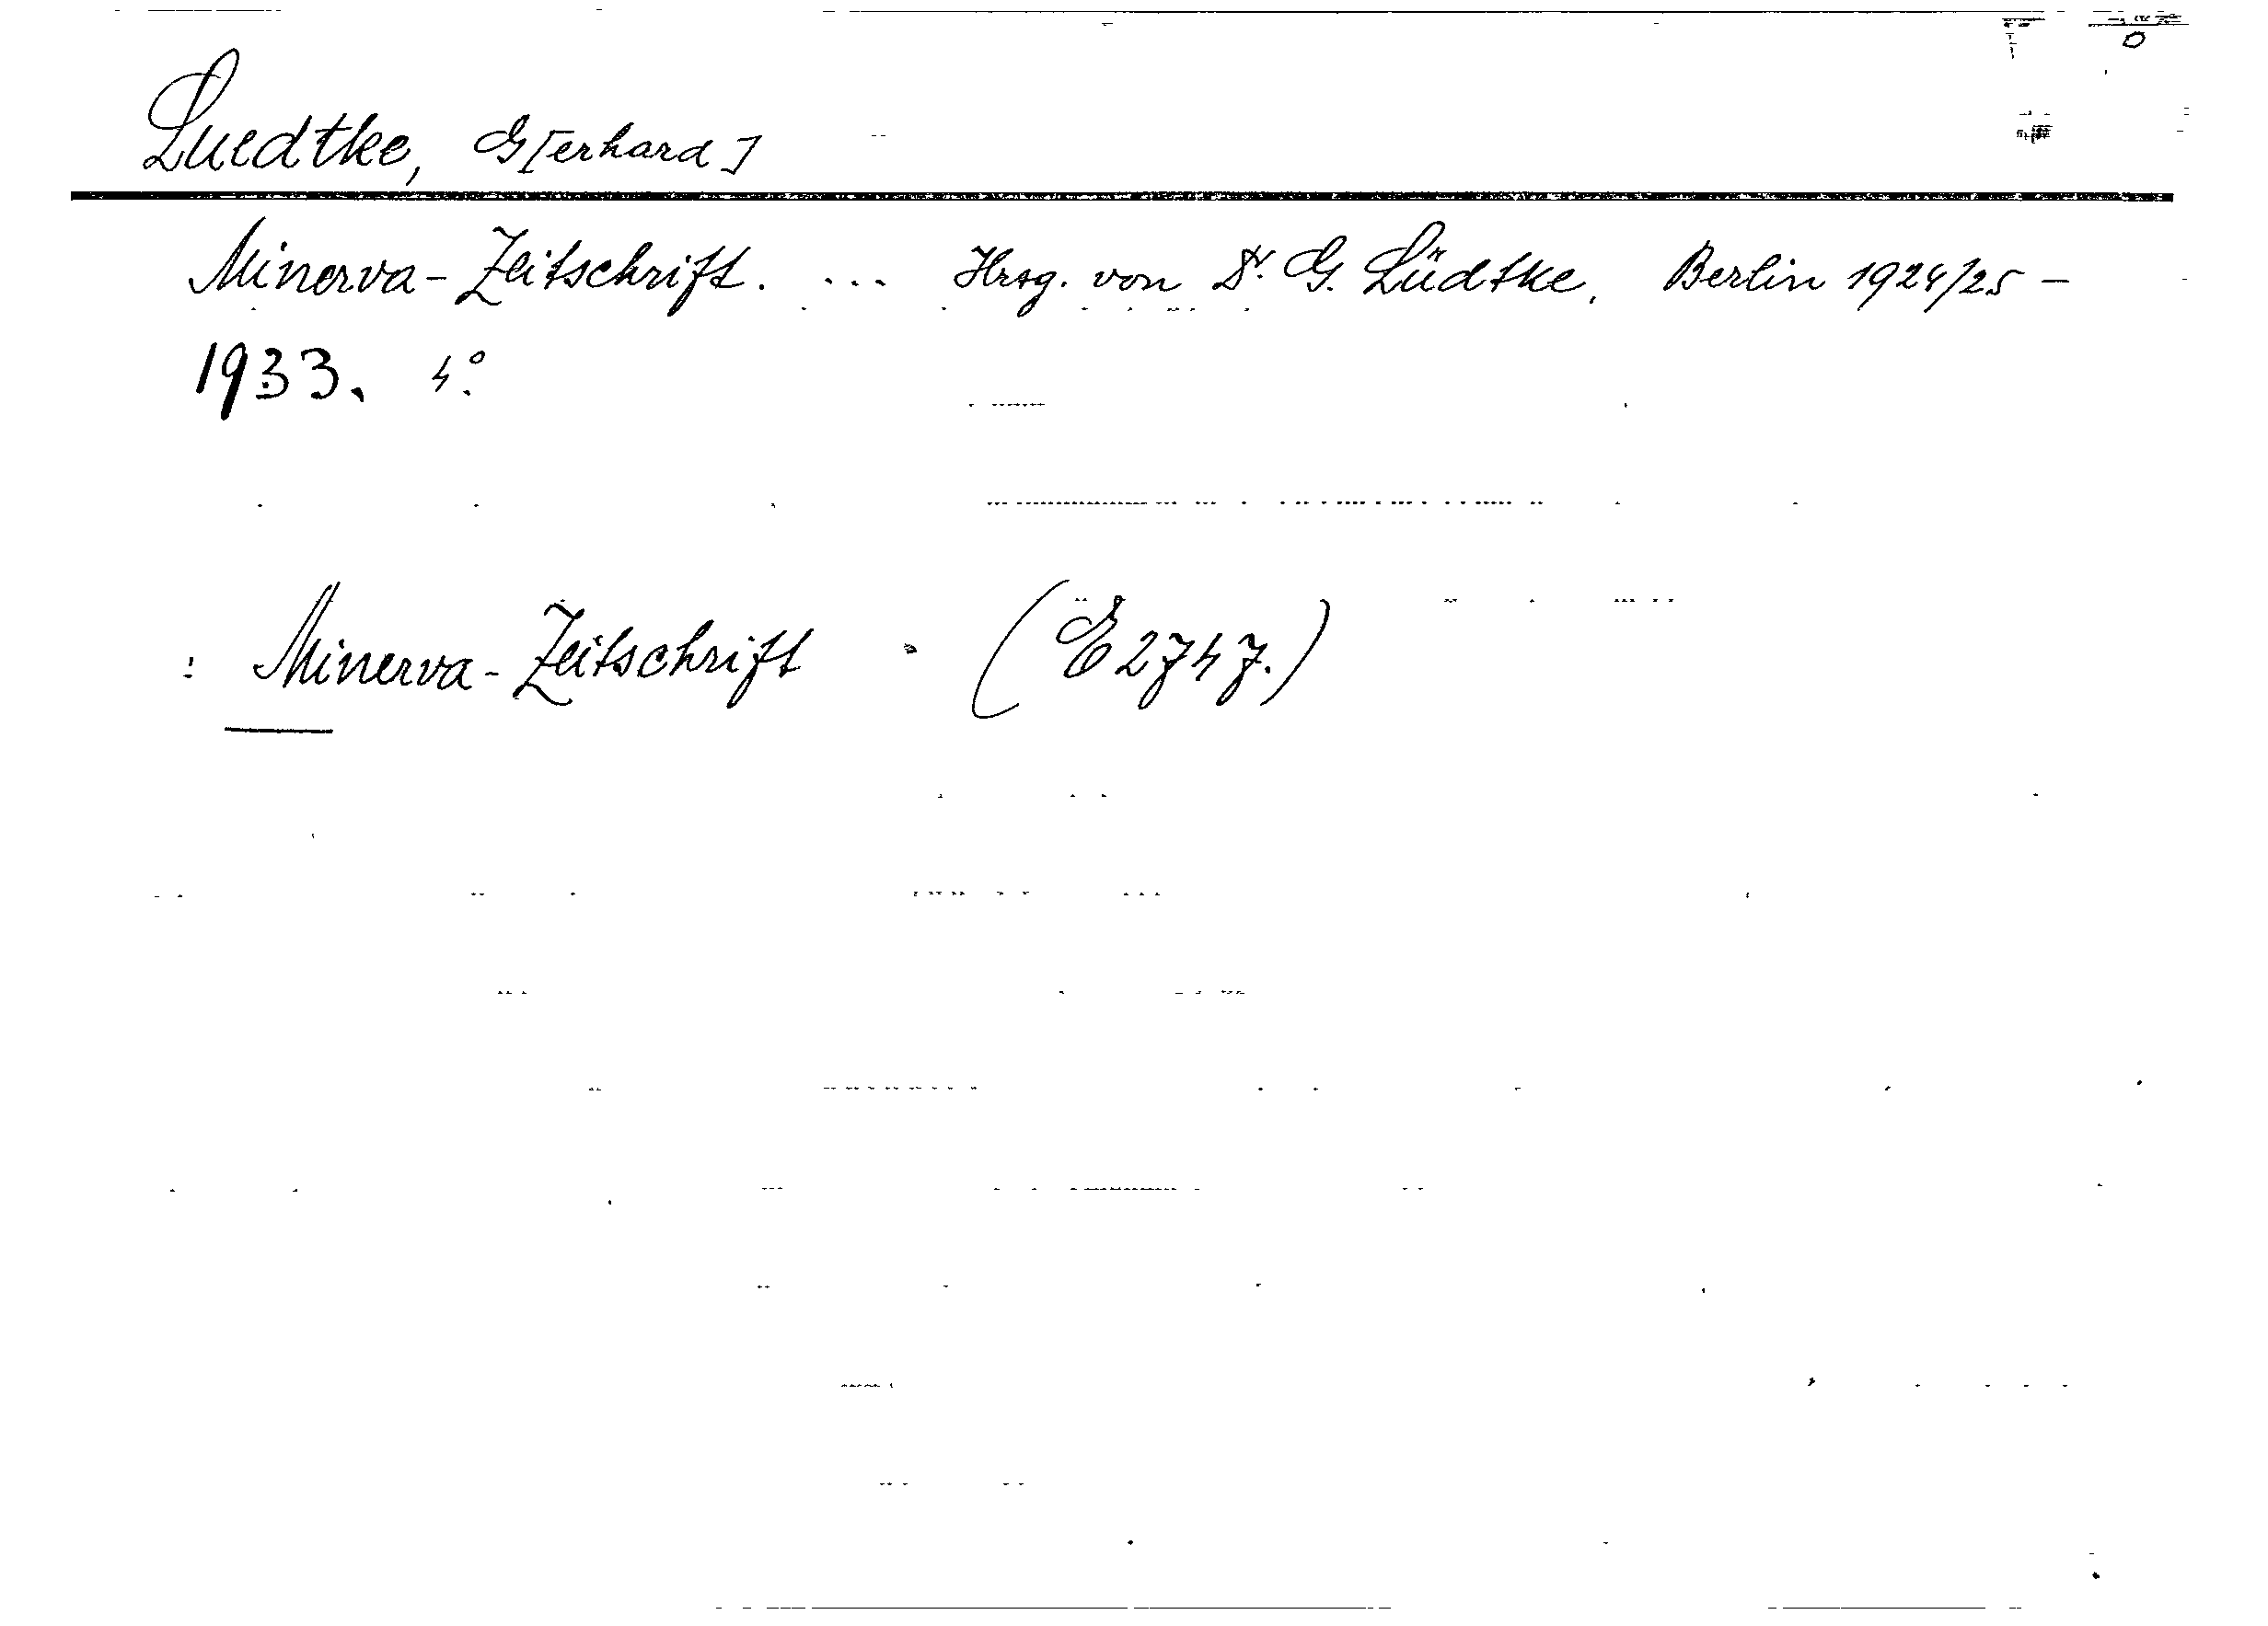 Luedtke, G[erhard]
Minerva-Zeitschrift. ... Hrsg. von Dr. G. Lüdtke. Berlin 1924/25 –
1933. 4°.
: Minerva-Zeitschrift . (E 2747.)